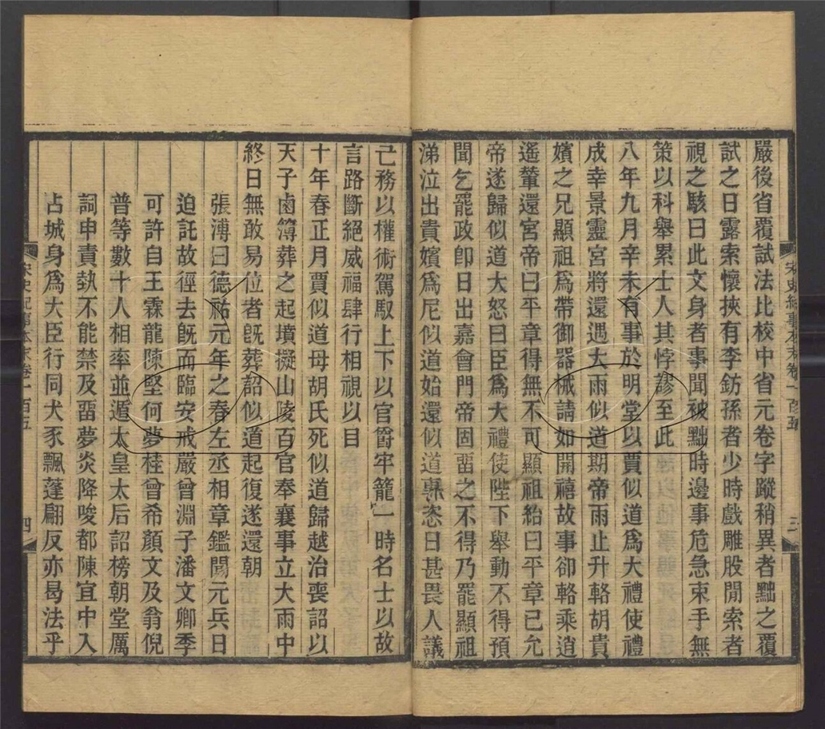 嚴後省覆試法比校中省元卷字蹤稍異者黜之覆
試之日露索懷挾有李鈁孫者少時戲雕股間索者
視之駭曰此文身者事聞被黜時邊事危急束手無
策以科舉累士人其悖謬至此
八年九月辛未有事於明堂以賈似道爲大禮使禮
成幸景靈宮將還遇大雨似道期帝雨止升輅胡貴
嬪之兄顯祖爲帶御器械請如開禧故事卻輅乘逍
遙輦還宮帝曰平章得無不可顯祖紿曰平章已允
帝遂歸似道大怒曰臣爲大禮使陛下舉動不得預
聞乞罷政卽日出嘉會門帝固畱之不得乃罷顯祖
涕泣出貴嬪爲尼似道始還似道專恣日甚畏人議
宋史紀事本末卷一百五
三
己務以權術駕馭上下以官爵牢籠一時名士以故
言路斷絕威福肆行相視以目
十年春正月賈似道母胡氏死似道歸越治喪詔以
天子鹵簿葬之起墳擬山陵百官奉襄事立大雨中
終日無敢易位者旣葬詔似道起復遂還朝
張溥曰德祐元年之春左丞相章鑑聞元兵日
迫託故徑去旣而臨安戒嚴曾淵子潘文卿季
可許自王霖龍陳堅何夢桂曾希顏文及翁倪
普等數十人相率並遁太皇太后詔榜朝堂厲
詞申責埶不能禁及畱夢炎降唆都陳宜中入
占城身爲大臣行同犬豕飄蓬翩反亦曷法乎
宋史紀事本末卷一百五
四